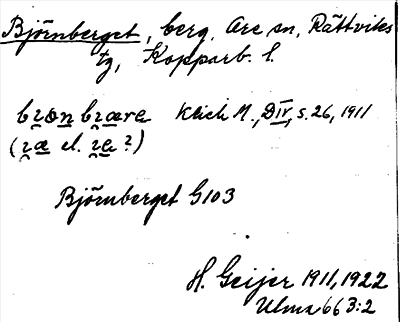 Björnberget, berg, Ore sn, Rättviks
tg, Kopparb. l.
H., DIV, s. 26, 1911
(ræ el. ?)
Björnberget G103
H. Geijer 1911, 1922
Ulma 66 3:2